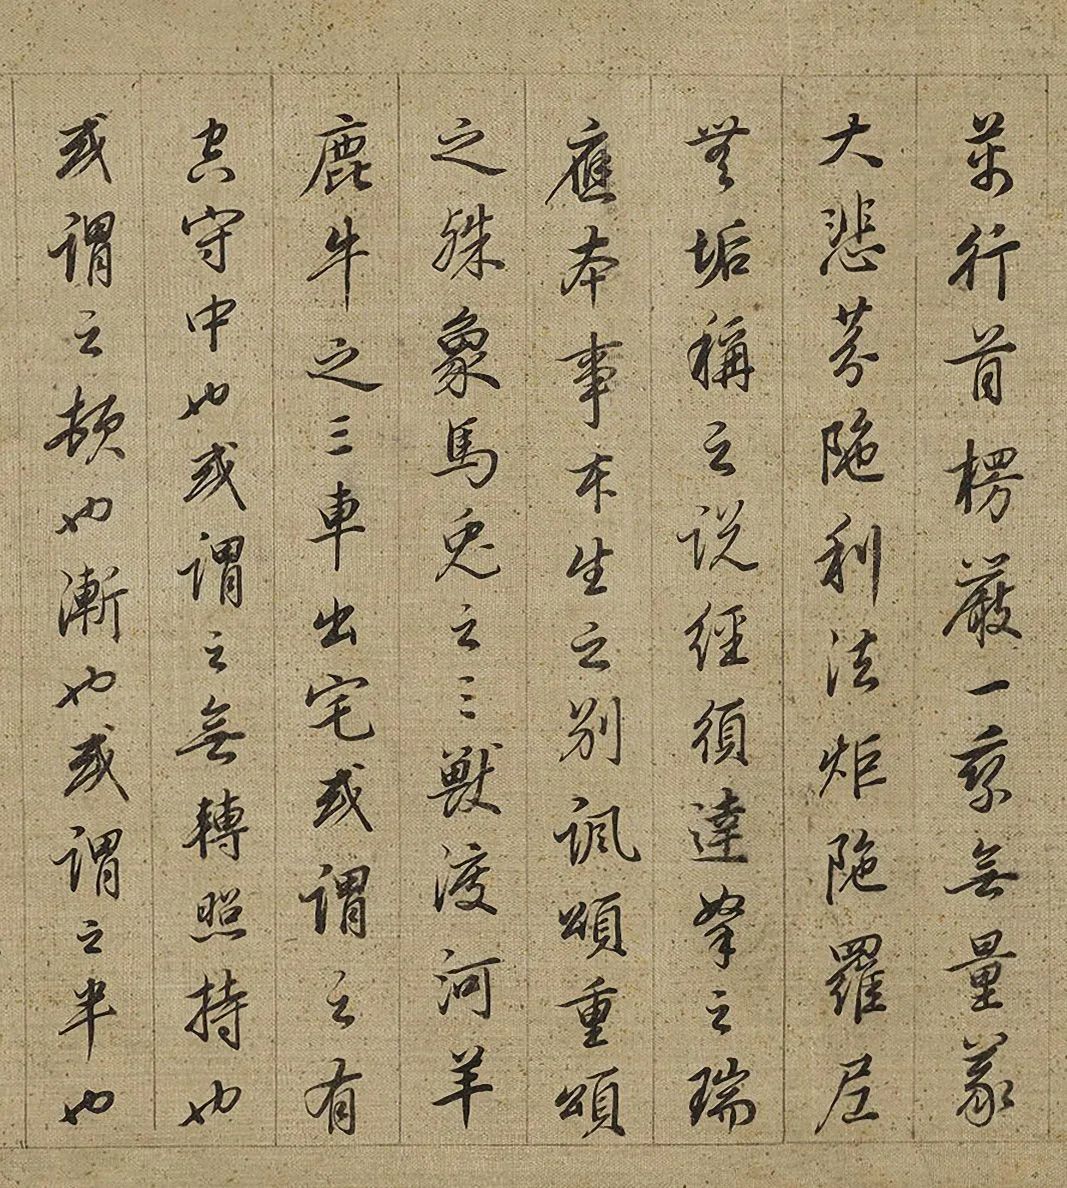 萬行首楞嚴一乘無量義
大悲芬陁利法炬陁羅尼
無垢稱之說經須達拏之瑞
應本事本生之別諷頌重頌
之殊象馬兔之三獸渡河羊
鹿牛之三車出宅或謂之有
空守中也或謂之無轉照持也
或謂之頓也漸也或謂之半也